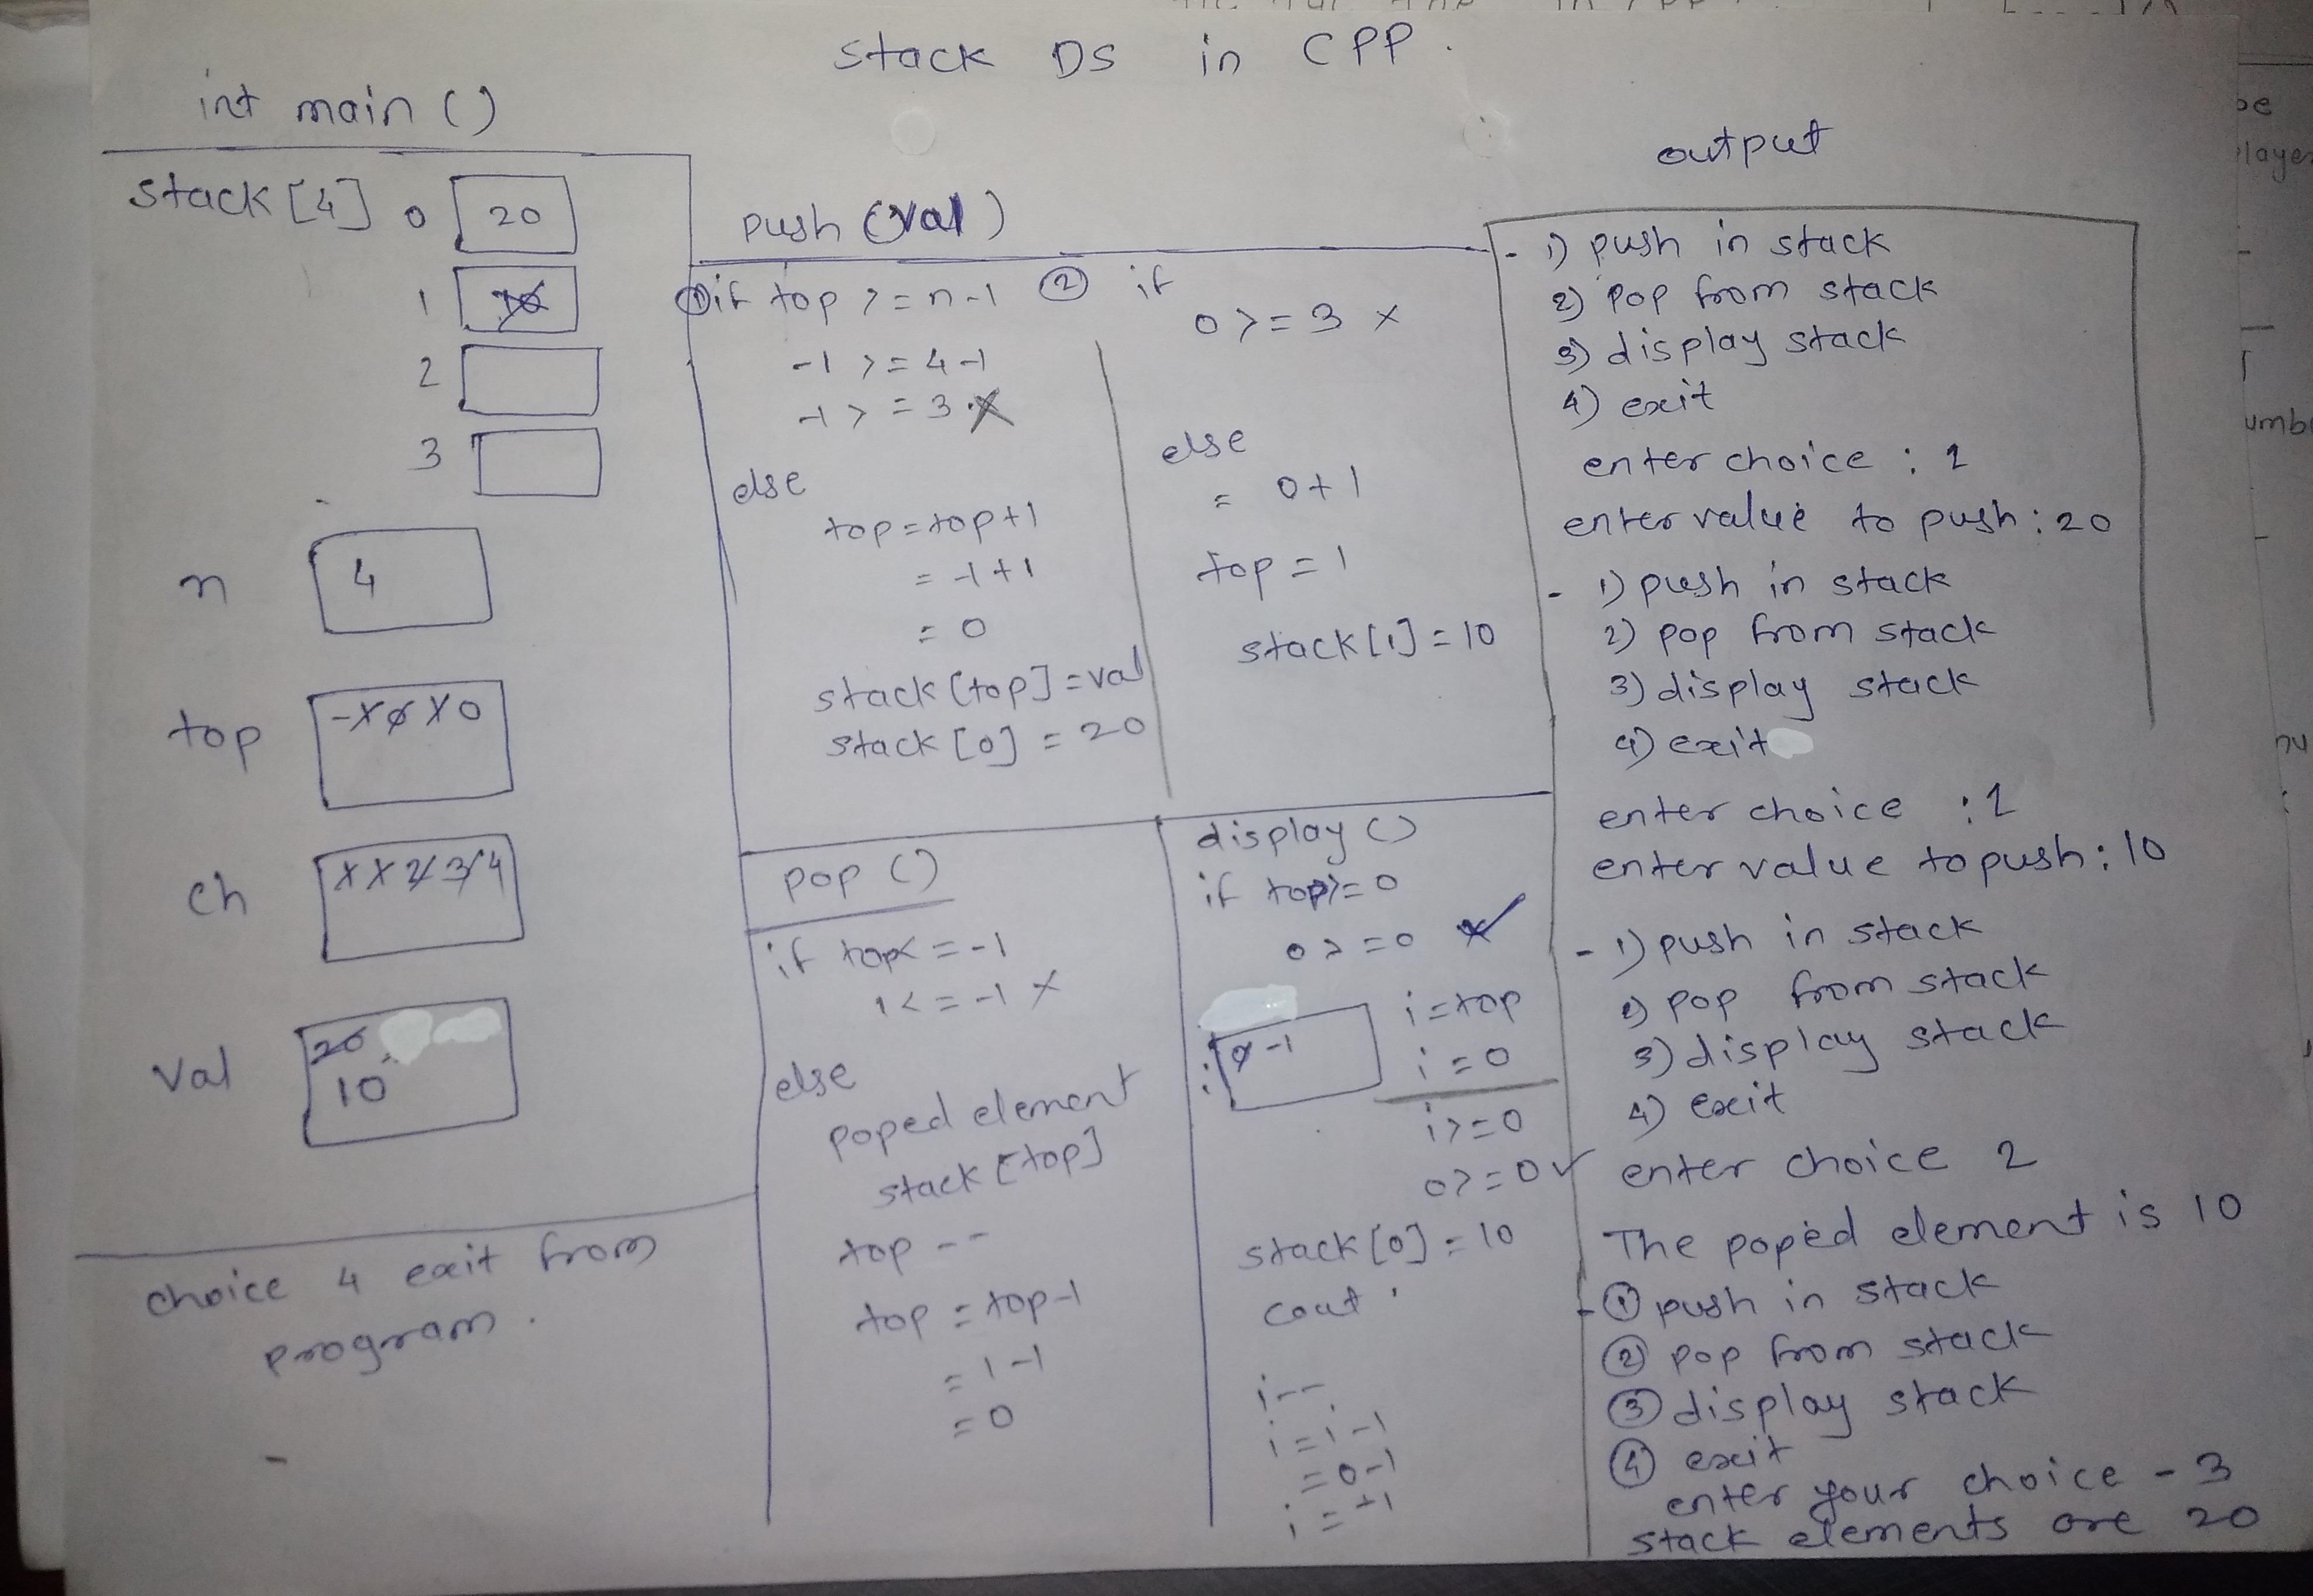 stack DS in CPP.
int main ()
stack [4] 0 20
1
2
3
n 4
top -1 0 1 0
ch 1 1 2 3 4
val 20
10
choice 4 exit from
program.
push (val)
① if top >= n-1
-1 >= 4-1
-1 >= 3 x
else
top = top+1
= -1+1
= 0
stack [top] = val
stack [0] = 20
② if
0 >= 3 x
else
= 0+1
top = 1
stack [1] = 10
pop ()
if top <= -1
1 <= -1 x
else
poped element
stack [top]
top --
top = top-1
= 1-1
= 0
display ()
if top >= 0
0 >= 0 ✓
i 0 -1
i = top
i = 0
i >= 0
0 >= 0 ✓
stack [0] = 10
cout
i--
i = i-1
= 0-1
i =
output
- 1) push in stack
2) pop from stack
3) display stack
4) exit
enter choice : 1
enter value to push : 20
- 1) push in stack
2) pop from stack
3) display stack
4) exit
enter choice : 1
enter value to push : 10
- 1) push in stack
2) pop from stack
3) display stack
4) exit
enter choice 2
The poped element is 10
- ① push in stack
② pop from stack
③ display stack
④ exit
enter your choice - 3
stack elements are 20